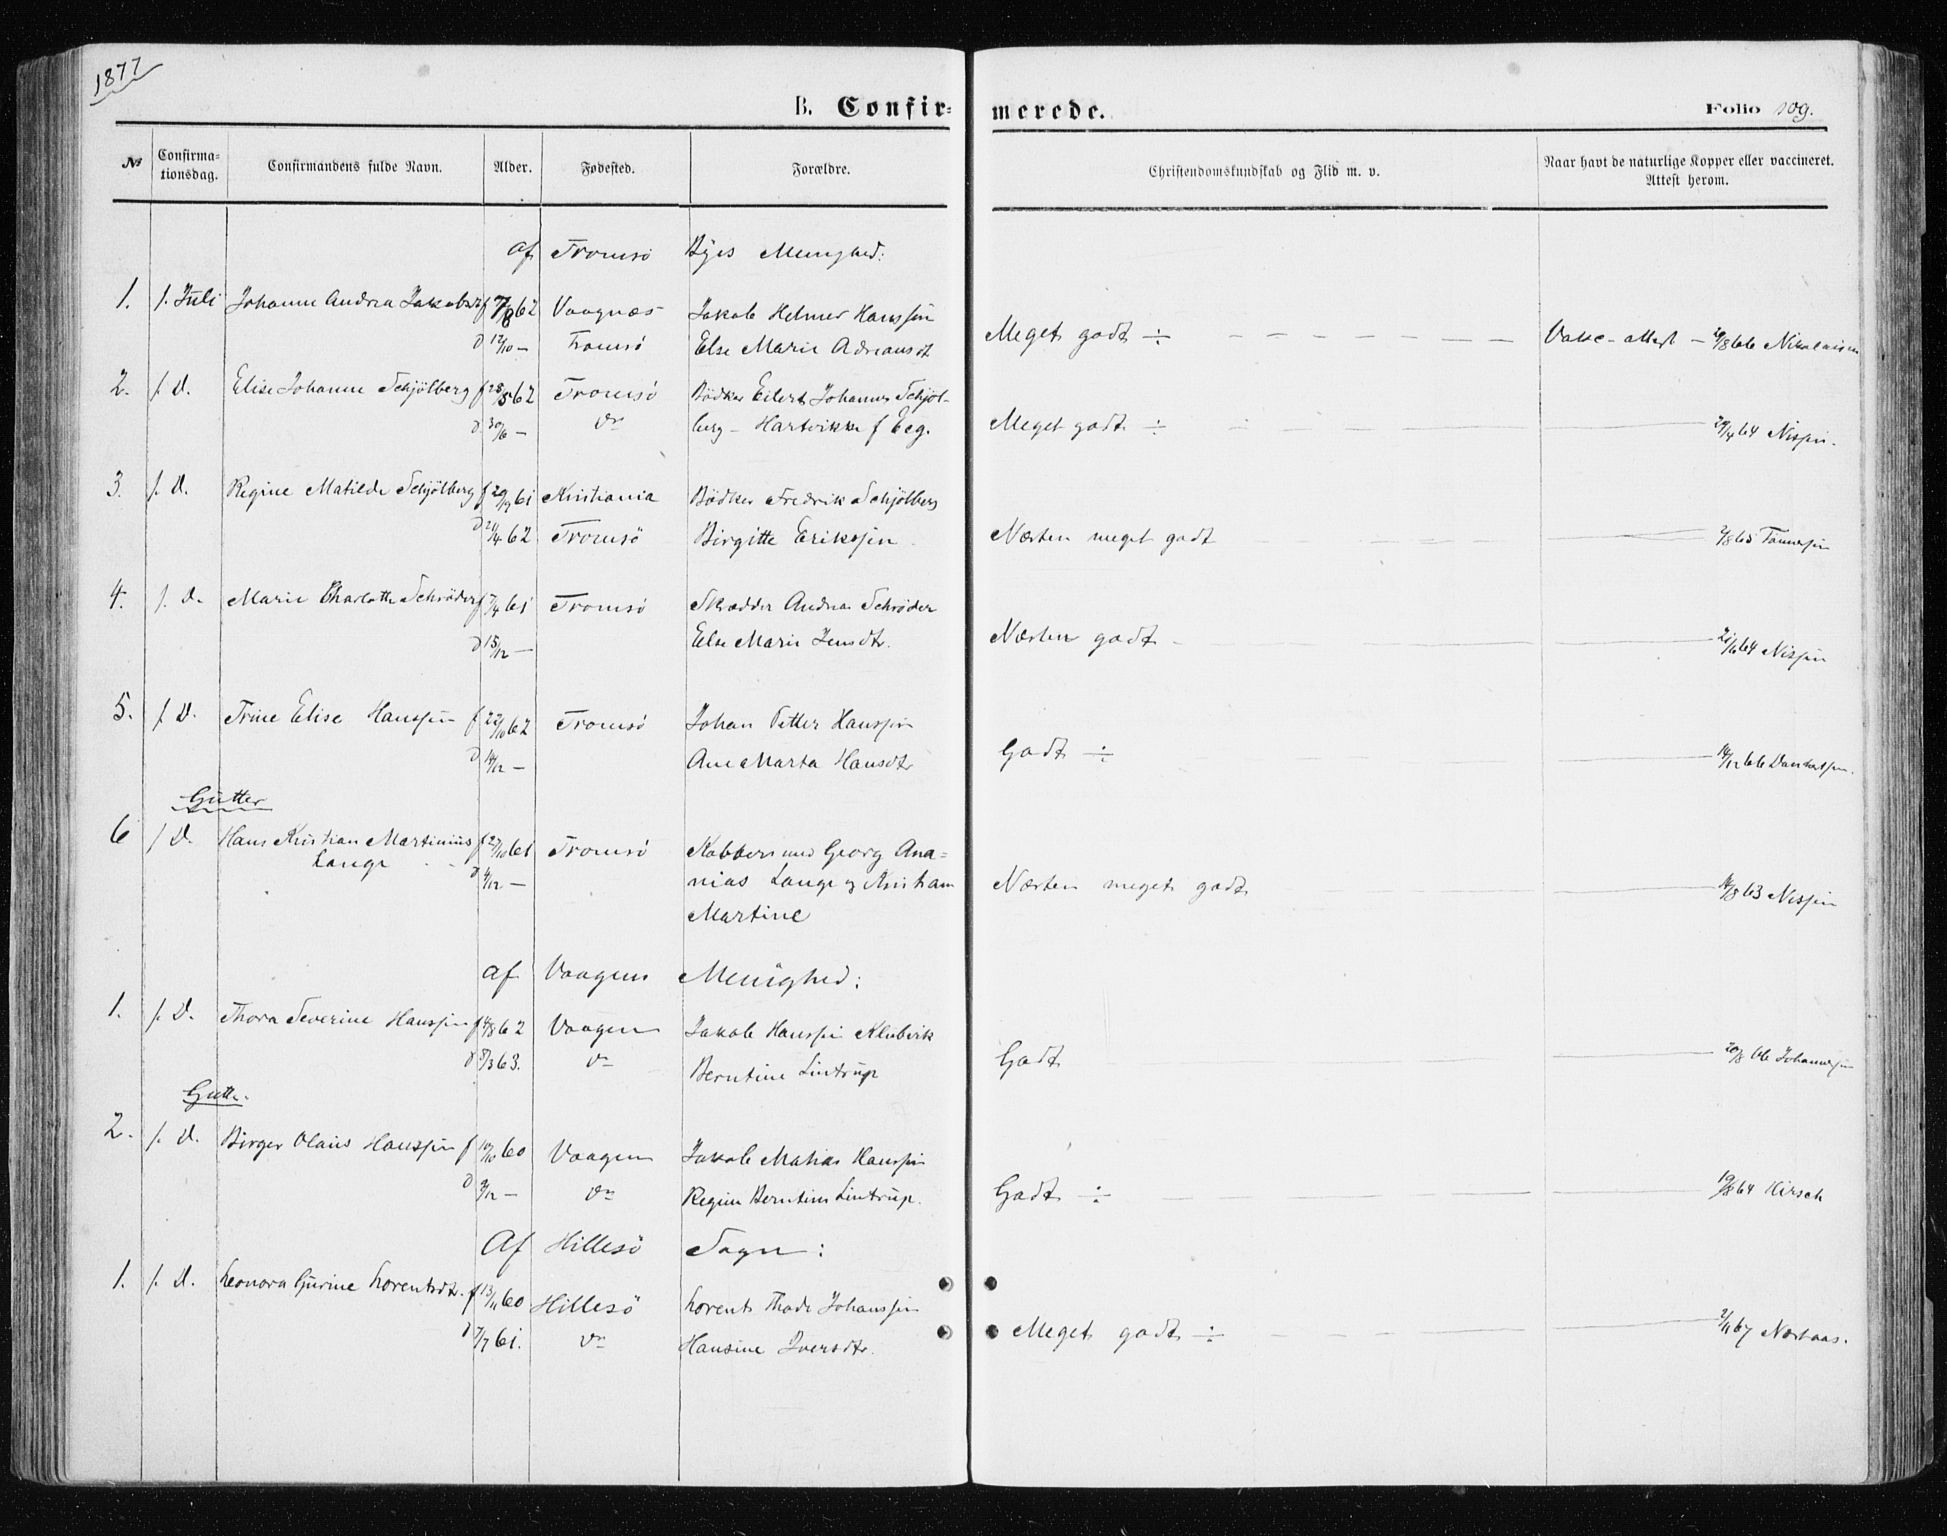 1877
B. Confir- merede. Folio 109.
No Confirma-tionsdag. Confirmandens fulde Navn. Alder. Fødested. Forældre. Christendomskundskab og Flid m. v. Naar havt de naturlige Kopper eller vaccineret. Attest herom.
af Tromsö Byes Menighed:
1. 1. Juli Johanne Andrea Jakobsd f 7/8 62 Vaagnæs Jakob Helmer Hanssen
d 12/10 — Tromsö Else Marie Adriansdt Meget godt ÷ Vakc-attest — 20/8 66 Nikolaissen
2. 1. D. Elise Johanne Schjölberg f 28/5 62 Tromsö Bödker Eilert Johannes Schjöl-
d. 30/6 — do berg — Hartvikke f Eeg. Meget godt ÷ 29/4 64 Nissen.
3. 1. D. Regine Matilde Schjölberg f 20/9 61 Kristiania Bödker Fredrik Schjölberg
d 21/4 62 Tromsö Birgitte Erikssen Næsten meget godt 2/8 65
4. 1. D. Marie Charlotte Schrøder f 7/4 61 Tromsö Skrædder Andreas Schrøder
d 15/12 — Else Marie Jensdtr. Næsten godt 21/6 64 Nissen
5. 1. D. Trine Elise Hanssen f 22/10 62 Tromsö Johan Petter Hanssen
d 14/12 — Ane Marta Hansdtr Godt ÷ 14/12 66
Gutter
6 1 D. Hans Kristian Martinius f 27/10 61 Tromsö Georg Ana-
Lange d 4/12 — nias Lange og Kristiane Næsten meget godt 16/8 63 Nissen
Martine
af Vaagens Menighed:
1. 1. D. Thora Severine Hanssen f 4/8 62 Vaagen Jakob Hanssen Klubvik
d 8/3 63. do Berntine Lintrup Godt 20/8 66 Johannessen
Gutter.
2. 1. D. Birger Olaus Hanssen f 10/10 60 Vaagen Jakob Matias Hanssen
d 9/12 — do Regine Berntine Lintrup. Godt ÷ 19/8 64 Hirsch
Af Hillesö Sogn:
1. 1. D. Leonora Gurine Lorentsdtr. f 13/11 60 Hillesö Lorents Thode Johanssen
d 7/7 61. do Hansine Iversdtr. Meget godt ÷ 2/11 67 Næstaas.